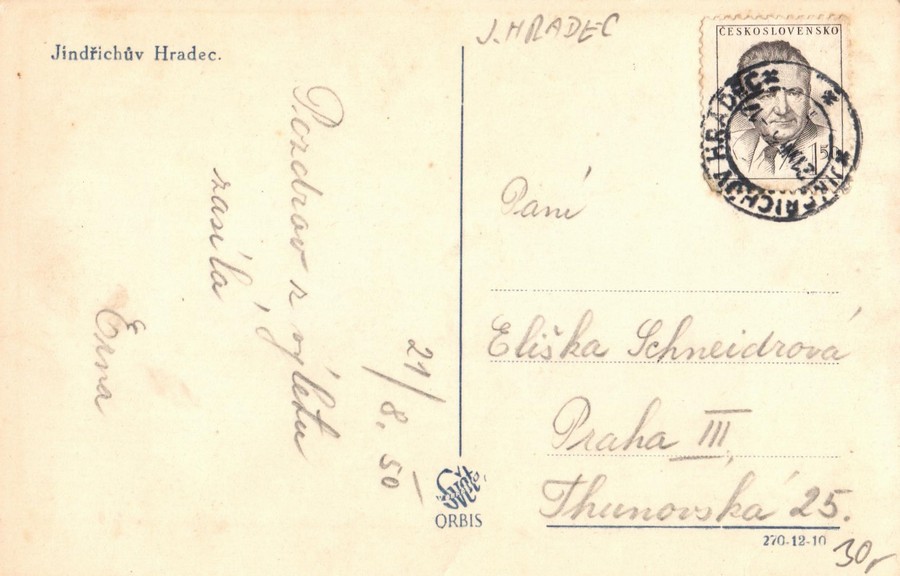 Jindřichův Hradec.
J. HRADEC
ČESKOSLOVENSKO
JINDŘICHŮV HRADEC
21/8. 50
Pozdrav z výletu
zasílá
Erna
Paní
Eliška Schneidrová
Praha III
Thunovská 25.
ORBIS
270-12-10
30,